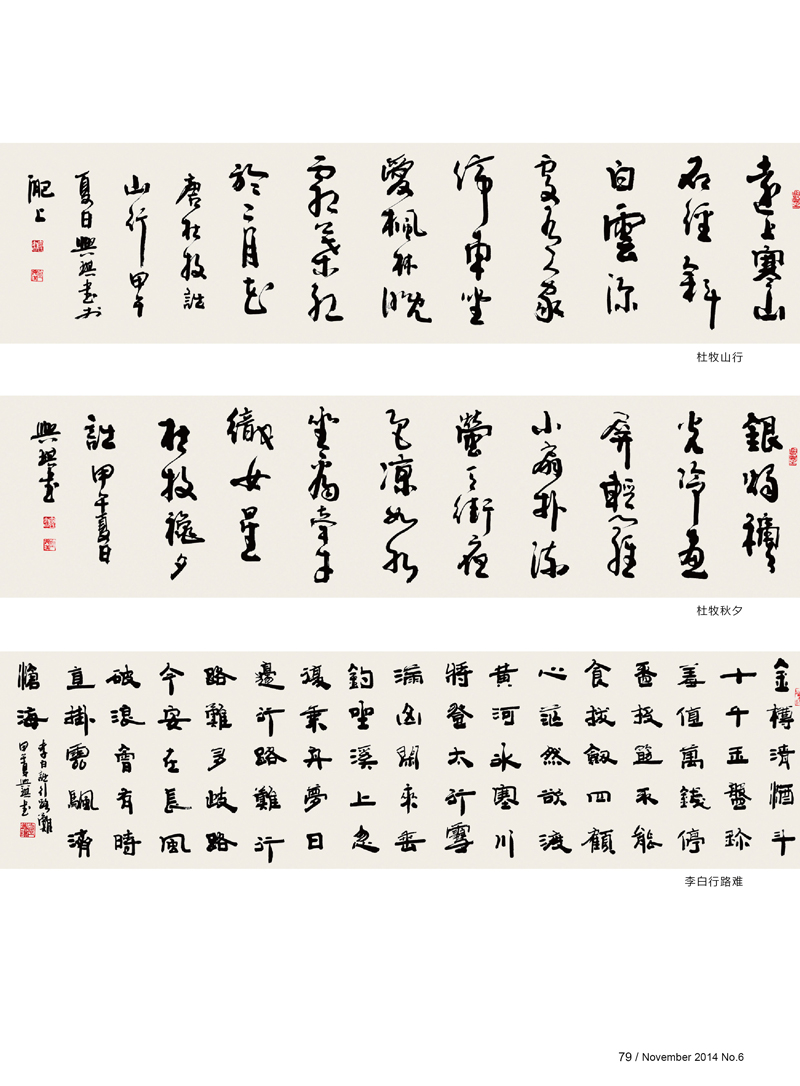 遠上寒山
石徑斜
白雲深
處有人家
停車坐
愛楓林晚
霜葉紅
於二月花
唐杜牧詩
山行甲午
夏日興書於
肥上
杜牧山行
銀燭穐
光冷畫
屏輕羅
小扇扑流
螢天街夜
色涼如水
坐看牽牛
織女星
杜牧穐夕
詩甲午夏日
興書
杜牧秋夕
金樽清酒斗
十千玉盤珍
羞值萬錢停
盃投筯不能
食拔劍四顧
心茫然欲渡
黃河冰塞川
將登太行雪
滿山閑來垂
釣坐溪上忽
復乘舟夢日
邊行路難行
路難多歧路
今安在長風
破浪會有時
直掛雲颿濟
滄海
李白詩行路難
甲午夏興書
李白行路难
79 / November 2014 No.6